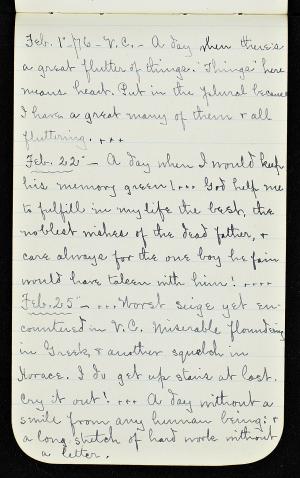 Feb. 1st '76 - V.C. - A day when there's
a great flutter of things. "Things" here
means heart. Put in the plural because
I have a great many of them & all
fluttering. ...
Feb. 22 - A day when I would keep
his memory green!... God help me
to fulfill in my life the best, the
noblest wishes of the dead father, &
care always for the one boy he fain
would have taken with him! ....
Feb. 25 - ... Worst seige yet en-
countered in V.C. Miserable floundering
in Greek, & another squelch in
Horace. I do get up stairs at last.
Cry it out! ... A day without a
smile from any human being: &
a long stretch of hard work without
a letter.